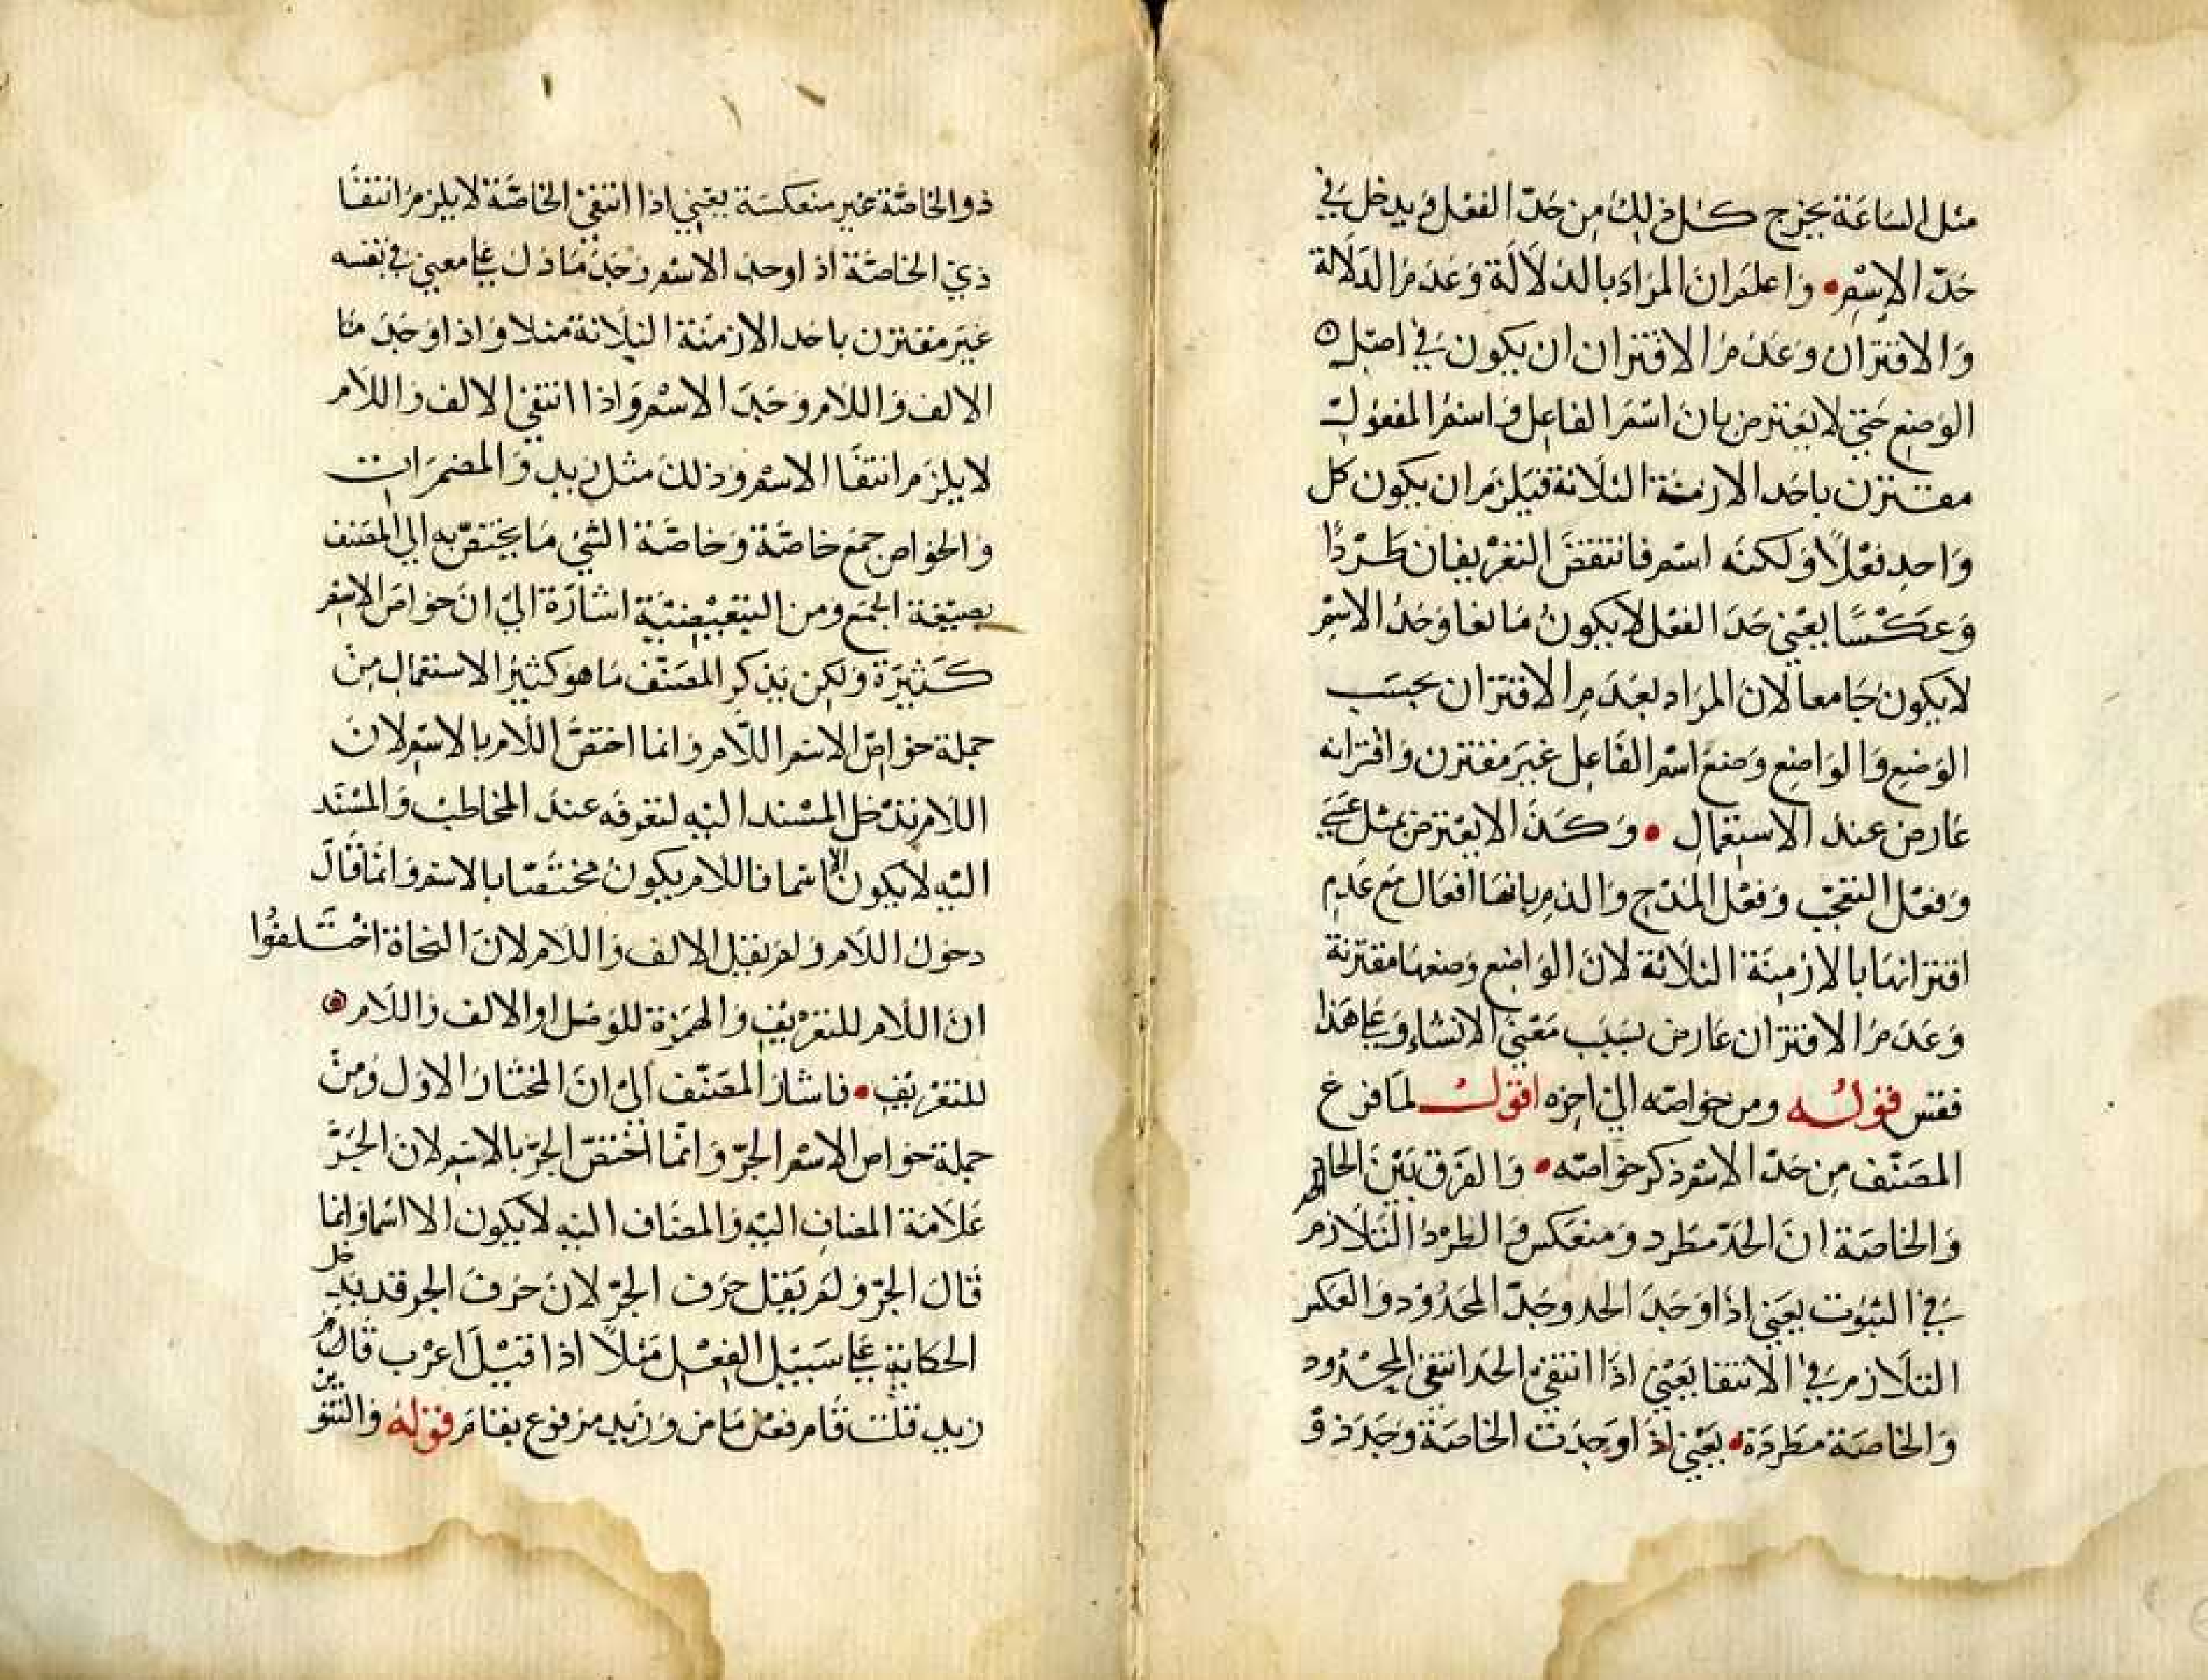 مثل الساعة يخرج كل ذلك من حدّ الفعل ويدخل في
حدّ الاسم • واعلم ان المراد بالدلالة وعدم الدلالة
والاقتران وعدم الاقتران ان يكون في اصل
الوضع حتى لا يعترض بان اسم الفاعل واسم المفعول
مقترن باحد الازمنة الثلاثة فيلزم ان يكون كل
واحد فعلاً ولكنه اسم فانتقض التعريفان طردًا
وعكسًا يعني حد الفعل لا يكون مانعا وحد الاسم
لا يكون جامعا لان المراد بعدم الاقتران بحسب
الوضع والواضع وضع اسم الفاعل غير مقترن واقترانه
عارض عند الاستعمال • وكذا لا يعترض بمثل عسى
وفعل التعجب وفعل المدح والذم بانها افعال مع عدم
اقترانها بالازمنة الثلاثة لان الواضع وضعها مقترنة
وعدم الاقتران عارض بسبب معنى الانشاء وعلى هذا
فقس قوله ومن خواصه الى اخره اقول لما فرغ
المصنّف من حدّ الاسم ذكر خواصّه • والفرق بين الحد
والخاصة ان الحدّ مطرد ومنعكس والطرد التلازم
في الثبوت يعني اذا وجد الحد وجد المحدود والعكس
التلازم في الانتفا يعني اذا انتفى الحد انتفى المحدود
والخاصة مطردة • يعني اذا وجدت الخاصة وجد ذو
ذو الخاصّة غير منعكسة يعني اذا انتفى الخاصّة لا يلزم انتفا
ذي الخاصّة اذا وجد الاسم وجد ما دل على معنى في نفسه
غير مقترن باحد الازمنة الثلاثة مثلا واذا وجد ما
الالف واللام وجد الاسم واذا انتفى الالف واللام
لا يلزم انتفا الاسم وذلك مثل زيد والمضمرات
والخواص جمع خاصّة وخاصّة الشي ما يختص به اتى المصنف
بصيغة الجمع ومن التبعيضيّة اشارة الى ان خواص الاسم
كثيرة ولكن يذكر المصنّف ما هو كثير الاستعمال من
جملة خواصّ الاسم اللام وانما اختصّ اللام بالاسم لان
اللام تدخل المسند اليه لتعرفه عند المخاطب والمسند
اليه لا يكون الا اسما فاللام يكون مختصا بالاسم وانما قال
دخول اللام ولم يقل الالف واللام لان النحاة اختلفوا
ان اللام للتعريف والهمزة للوصل او الالف واللام
للتعريف • فاشار المصنّف الى ان المختار الاول ومن
جملة خواص الاسم الجرّ وانّما اختصّ الجرّ بالاسم لان الجرّ
علامة المضاف اليه والمضاف اليه لا يكون الا اسما وانما
قال الجرّ ولم يقل حرف الجرّ لان حرف الجر قد يدخل
الحكاية على سبيل الفعل مثلا اذا قيل اعرب قام
زيد قلت قام فعل ماض وزيد مرفوع بقام قوله والتنوين